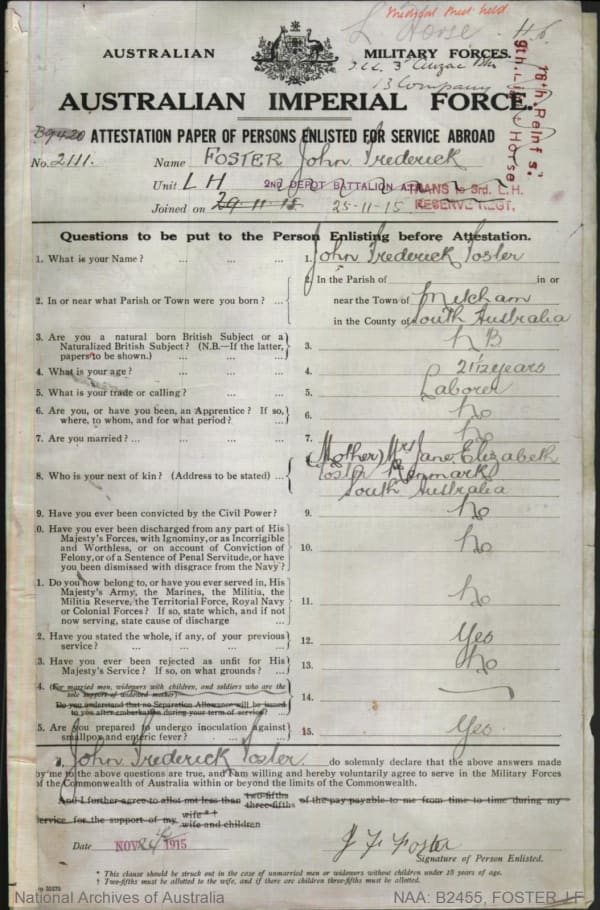 Medical Sheet held.
L Horse
AUSTRALIAN MILITARY FORCES.
I.C.C. 3rd Anzac Btn
B Company
AUSTRALIAN IMPERIAL FORCE.
18th Reinf's.
9th Light Horse
ATTESTATION PAPER OF PERSONS ENLISTED FOR SERVICE ABROAD
No. 2111. Name FOSTER John Frederick
Unit L H 2ND DEPOT BATTALION TRANS to 3rd. L.H.
RESERVE REGT.
Joined on 29-11-15 25-11-15
Questions to be put to the Person Enlisting before Attestation.
1. What is your Name? ... ... ... 1. John Frederick Foster
2. In or near what Parish or Town were you born? ... 2. In the Parish of in or
near the Town of Mitcham
in the County of South Australia
3. Are you a natural born British Subject or a
Naturalized British Subject? (N.B.—If the latter,
papers to be shown.) ... ... 3. N B
4. What is your age? ... ... ... 4. 21 1/12 years
5. What is your trade or calling? ... ... 5. Laborer
6. Are you, or have you been, an Apprentice? If so,
where, to whom, and for what period? ... 6. No
7. Are you married? ... ... ... 7. No
8. Who is your next of kin? (Address to be stated) ... 8. (Mother) Mrs Jane Elizabeth
Foster Renmark
South Australia
9. Have you ever been convicted by the Civil Power? 9. No
0. Have you ever been discharged from any part of His
Majesty's Forces, with Ignominy, or as Incorrigible
and Worthless, or on account of Conviction of
Felony, or of a Sentence of Penal Servitude, or have
you been dismissed with disgrace from the Navy? 10. No
1. Do you now belong to, or have you ever served in, His
Majesty's Army, the Marines, the Militia, the
Militia Reserve, the Territorial Force, Royal Navy
or Colonial Forces? If so, state which, and if not
now serving, state cause of discharge ... 11. No
2. Have you stated the whole, if any, of your previous
service? ... ... ... ... 12. Yes
3. Have you ever been rejected as unfit for His
Majesty's Service? If so, on what grounds? ... 13. No
4. (For married men, widowers with children, and soldiers who are the
sole support of widowed mother)
Do you understand that no Separation Allowance will be issued
to you after embarkation during your term of service? 14.
5. Are you prepared to undergo inoculation against
smallpox and enteric fever? ... ... 15. Yes
I, John Frederick Foster do solemnly declare that the above answers made
by me to the above questions are true, and I am willing and hereby voluntarily agree to serve in the Military Forces
of the Commonwealth of Australia within or beyond the limits of the Commonwealth.
And I further agree to allot not less than two-fifths three-fifths of the pay payable to me from time to time during my
service for the support of my wife * †
wife and children
Date NOV 24th 1915 J F Foster
Signature of Person Enlisted.
* This clause should be struck out in the case of unmarried men or widowers without children under 18 years of age.
† Two-fifths must be allotted to the wife, and if there are children three-fifths must be allotted.
National Archives of Australia NAA: B2455, FOSTER J F